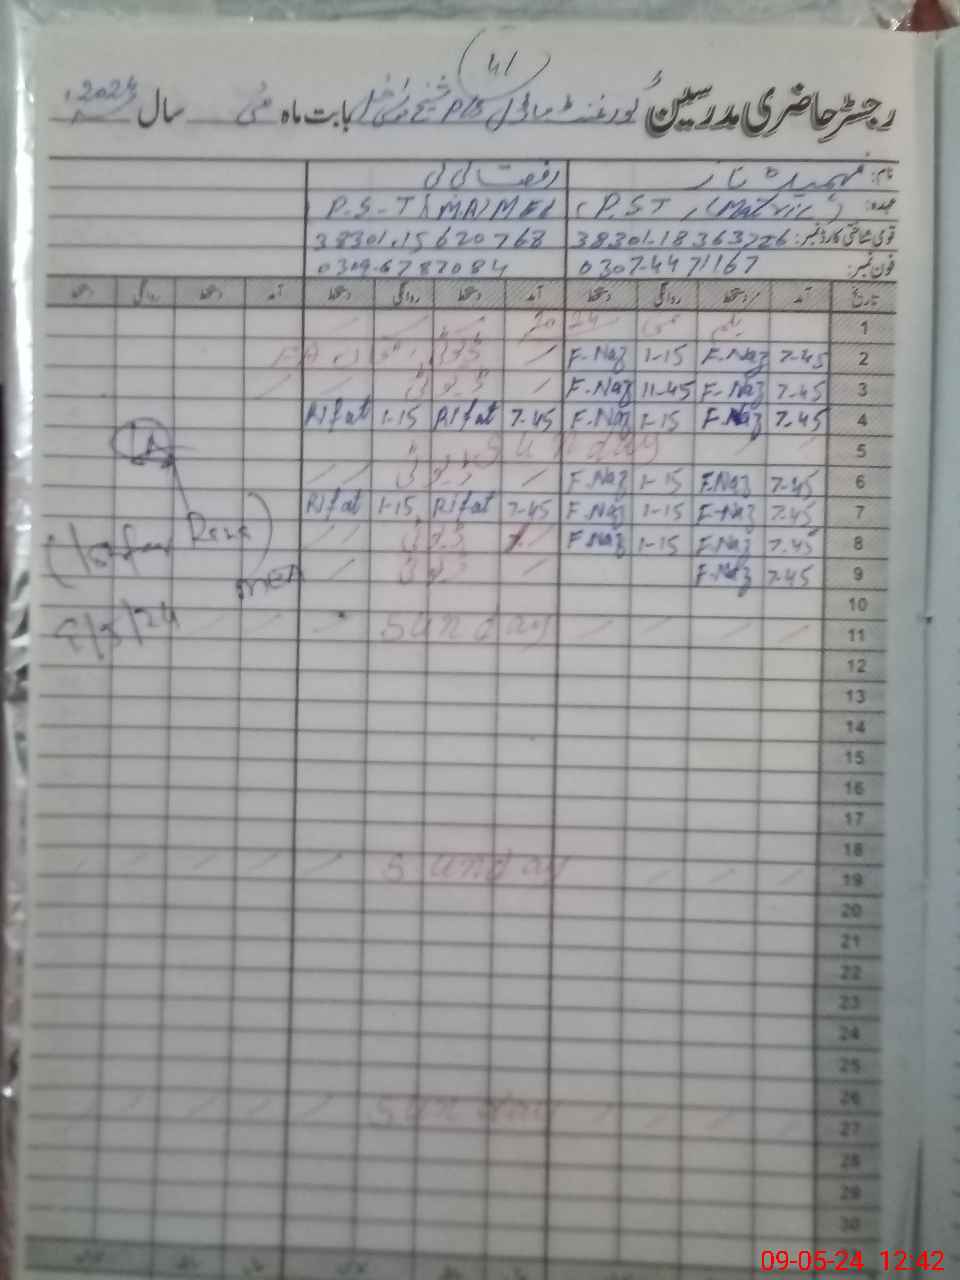 (41)
رجسٹر حاضری مدرسین گورنمنٹ ماڈل P/S بابت ماہ مئی سال 2024
نام: فہمیدہ ناز رفعت
عہدہ: P.S.T, (Matric) P.S-T (MA/MEd
قومی شناختی کارڈ نمبر: 38301-18363726 38301.15620768
فون نمبر: 0307-4471167 0309-6787084
تاریخ آمد دستخط روانگی دستخط آمد دستخط روانگی دستخط آمد دستخط روانگی دستخط
1
2 7-45 F-Naz 1-15 F-Naz
3 7-45 F-Naz 11-45 F-Naz
4 7-45 F-Naz 1-15 F-Naz 7-45 Rifat 1-15 Rifat
5 Sunday
6 7-45 F.Naz 1-15 F.Naz
7 7-45 F-Naz 1-15 F-Naz 7-45 Rifat 1-15 Rifat
8 7-45 F-Naz 1-15 F-Naz
9 7-45 F-Naz
10
11 Sunday
12
13
14
15
16
17
18
19 Sunday
20
21
22
23
24
25
26 Sunday
27
28
29
30
MEA
09-05-24 12:42